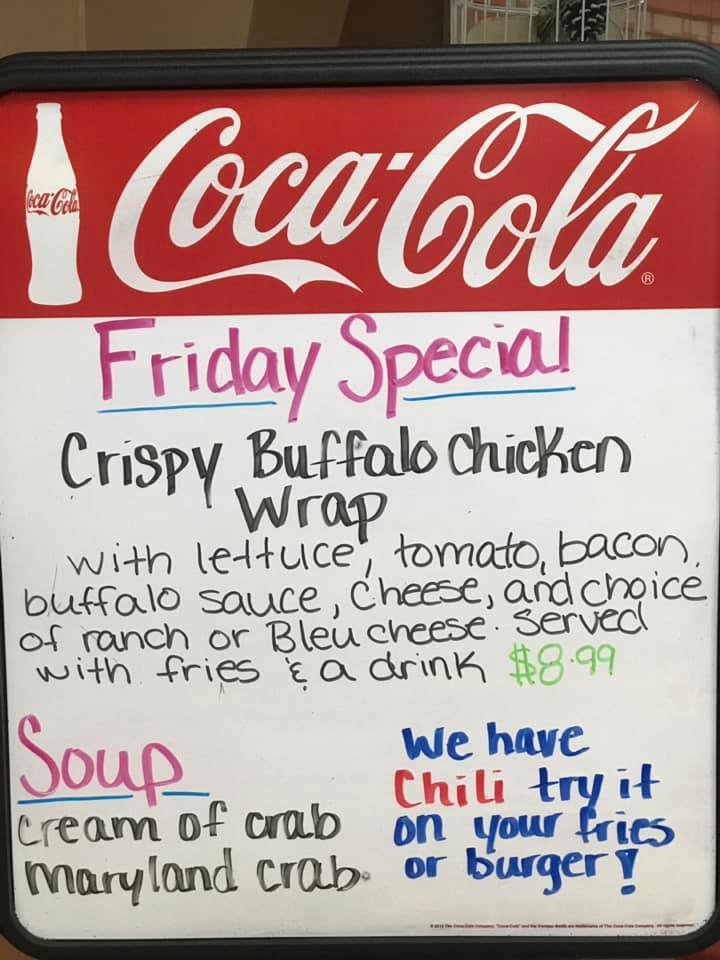 Coca-Cola
Coca-Cola®
Friday Special
Crispy Buffalo Chicken
Wrap
with lettuce, tomato, bacon,
buffalo sauce, cheese, and choice
of ranch or Bleu cheese. Served
with fries & a drink $8.99
Soup
cream of crab
maryland crab.
We have
Chili try it
on your fries
or burger!